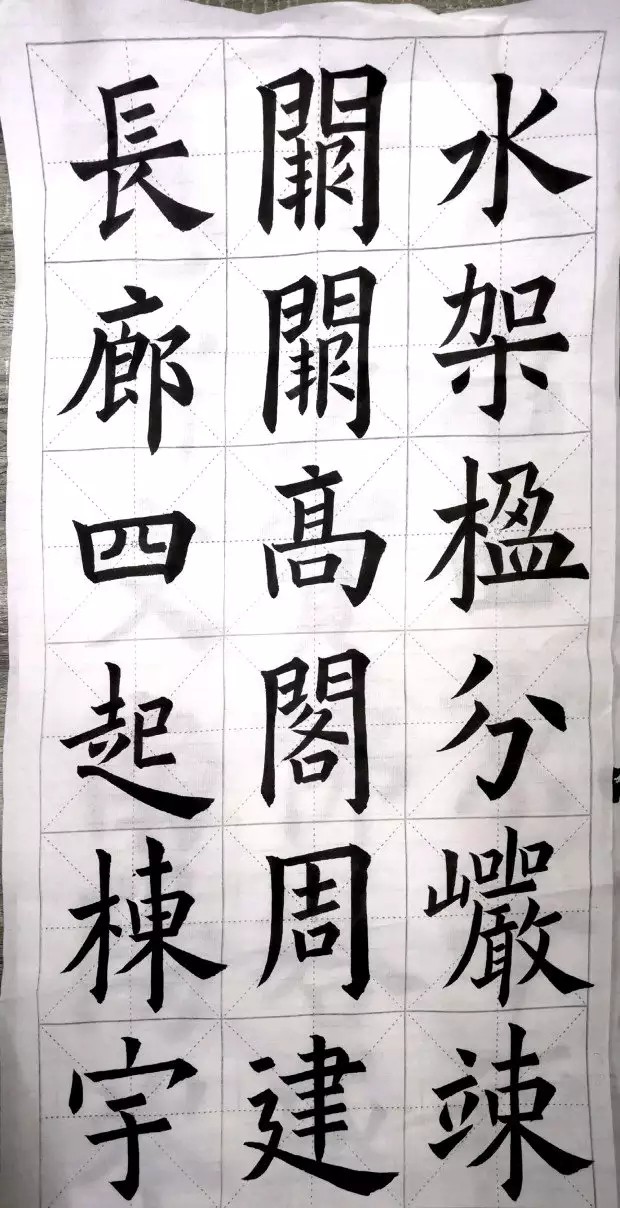 水架楹分巖竦
闕闕高閣周建
長廊四起棟宇